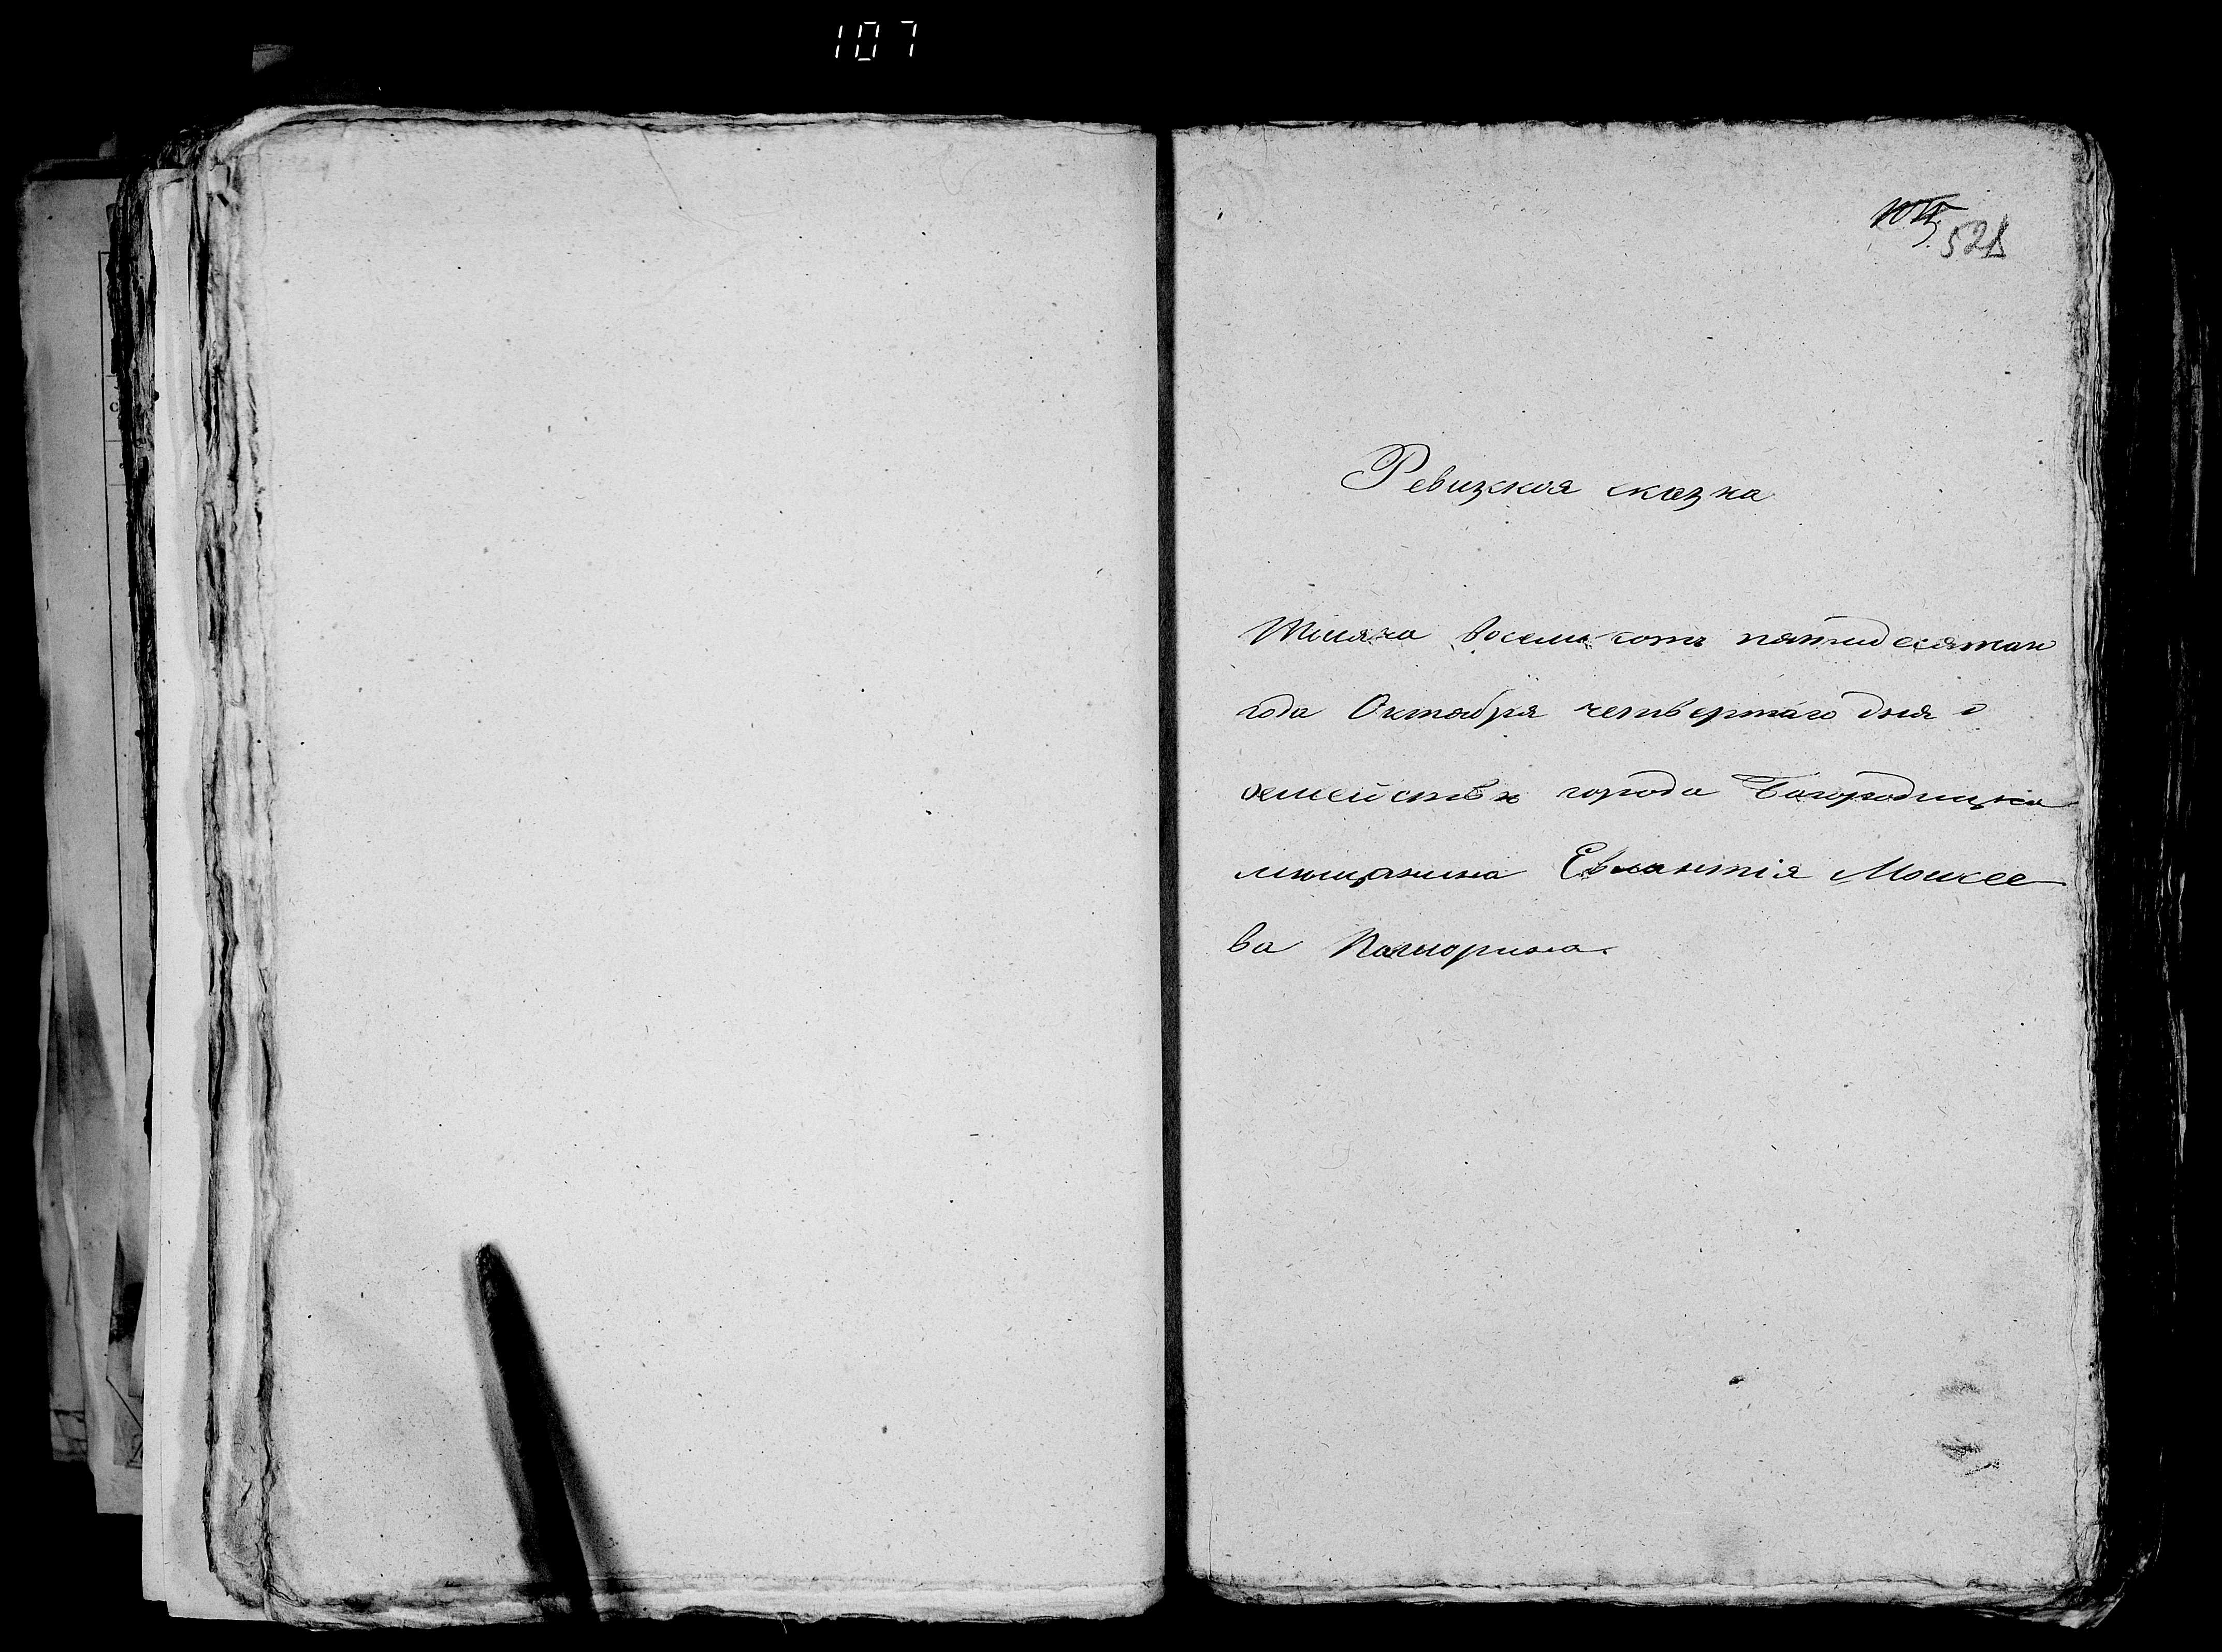 107
521
Ревизкая сказка
Тысяча восемь сотъ пятидесятаго
года Октября четвертаго дня о
семействѣ города Богородицка
мѣщанина Евлантія Моисее
ва